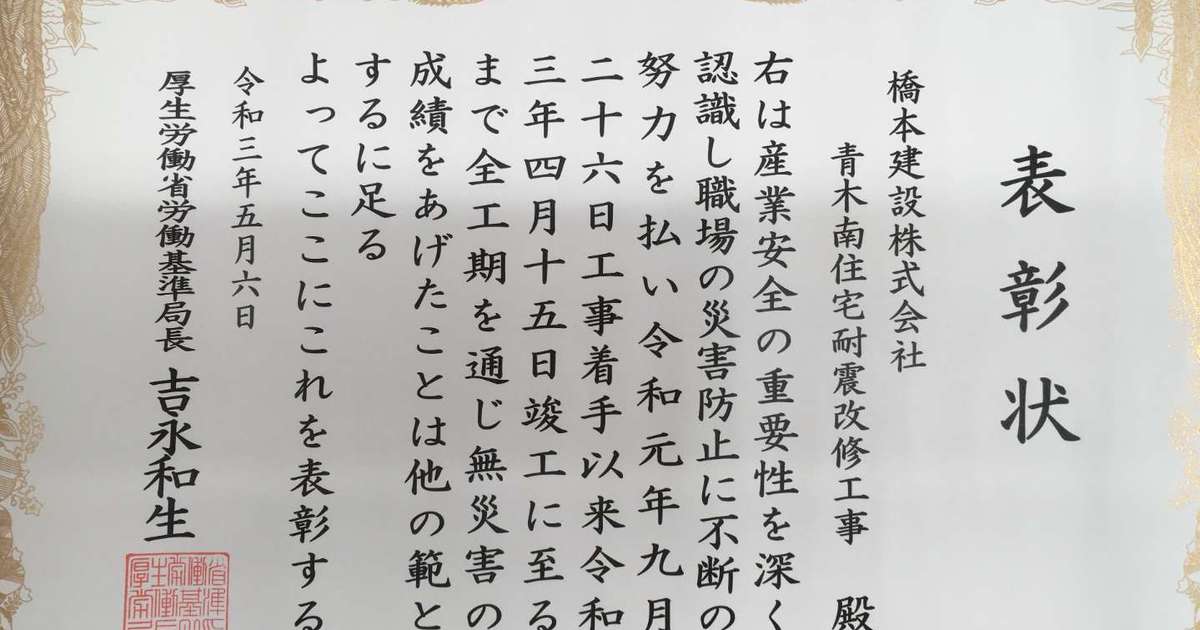 表彰状
橋本建設株式会社
青木南住宅耐震改修工事 殿
右は産業安全の重要性を深く
認識し職場の災害防止に不断の
努力を払い令和元年九月
二十六日工事着手以来令和
三年四月十五日竣工に至る
まで全工期を通じ無災害の
成績をあげたことは他の範と
するに足る
よってここにこれを表彰する
令和三年五月六日
厚生労働省労働基準局長 吉永和生